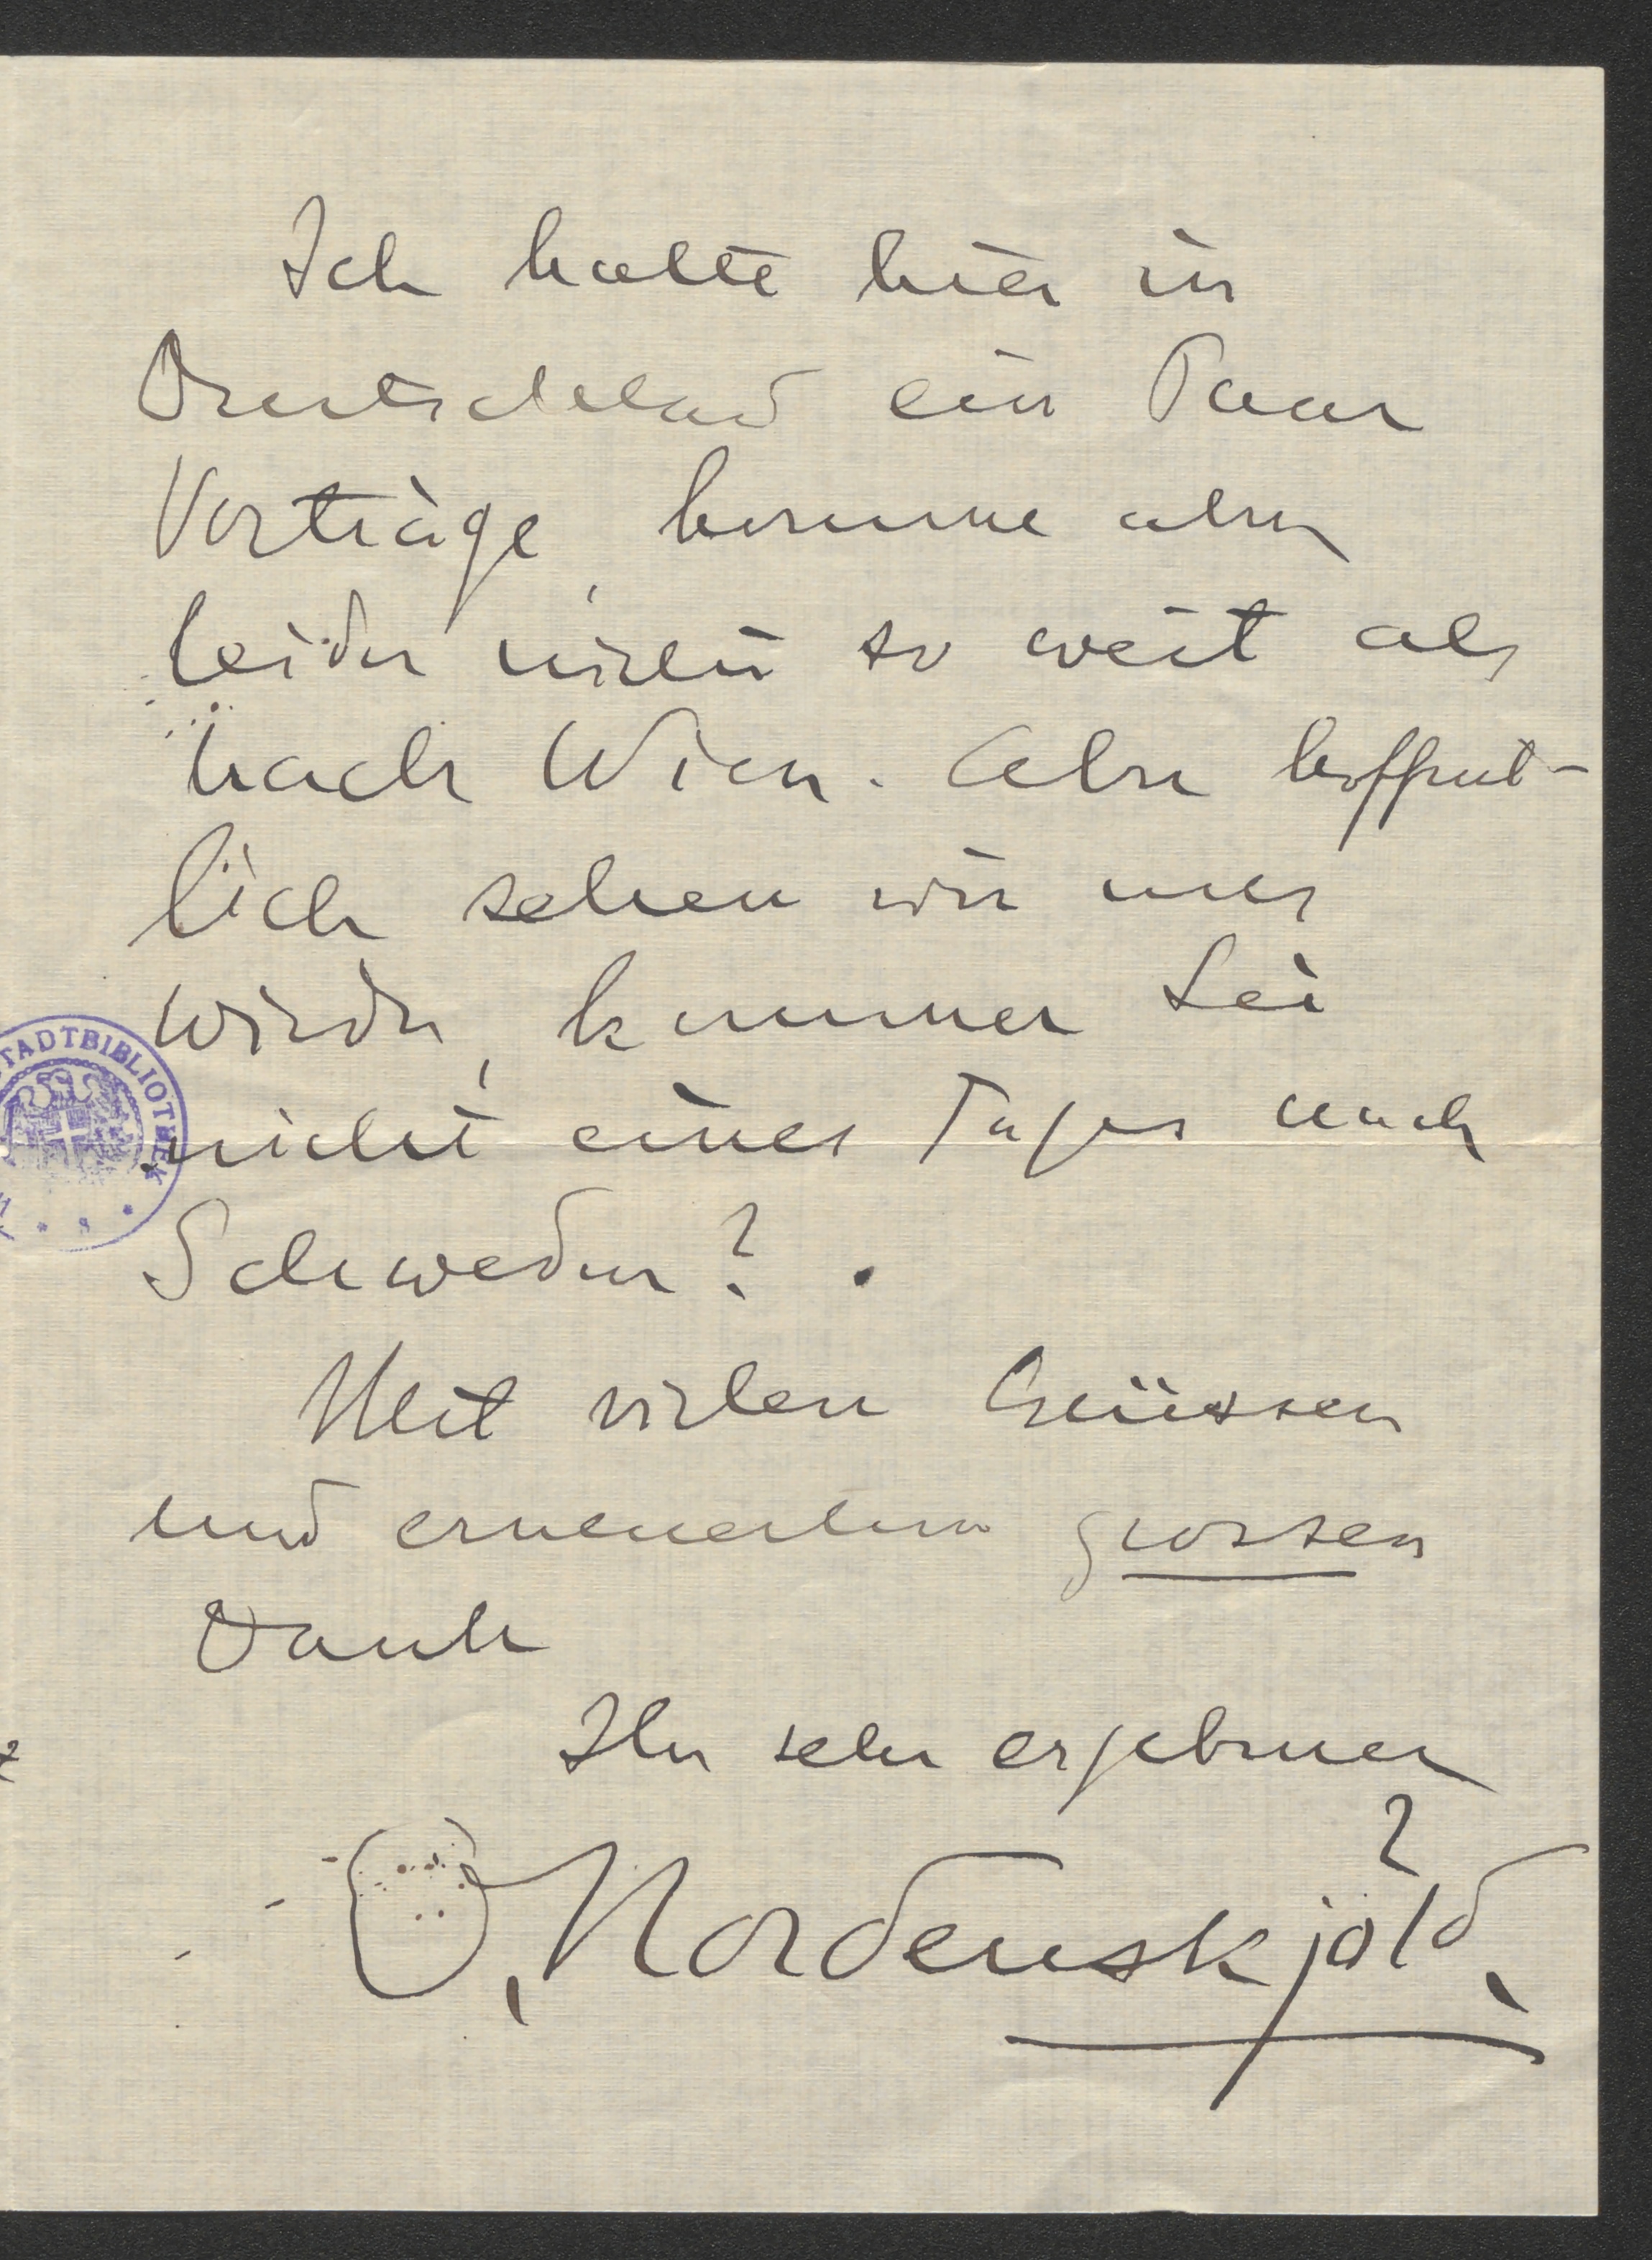 Ich halte hier in
Deutschland ein Paar
Vorträge, komme aber
leider nicht so weit als
nach Wien. Aber hoffent-
lich sehen wir uns
wieder, kommen Sie
nicht eines Tages nach
Schweden?
Mit vielen Grüssen
und erneuertem grossen
Dank
Ihr sehr ergebener
O. Nordenskjöld.
STADTBIBLIOTHEK